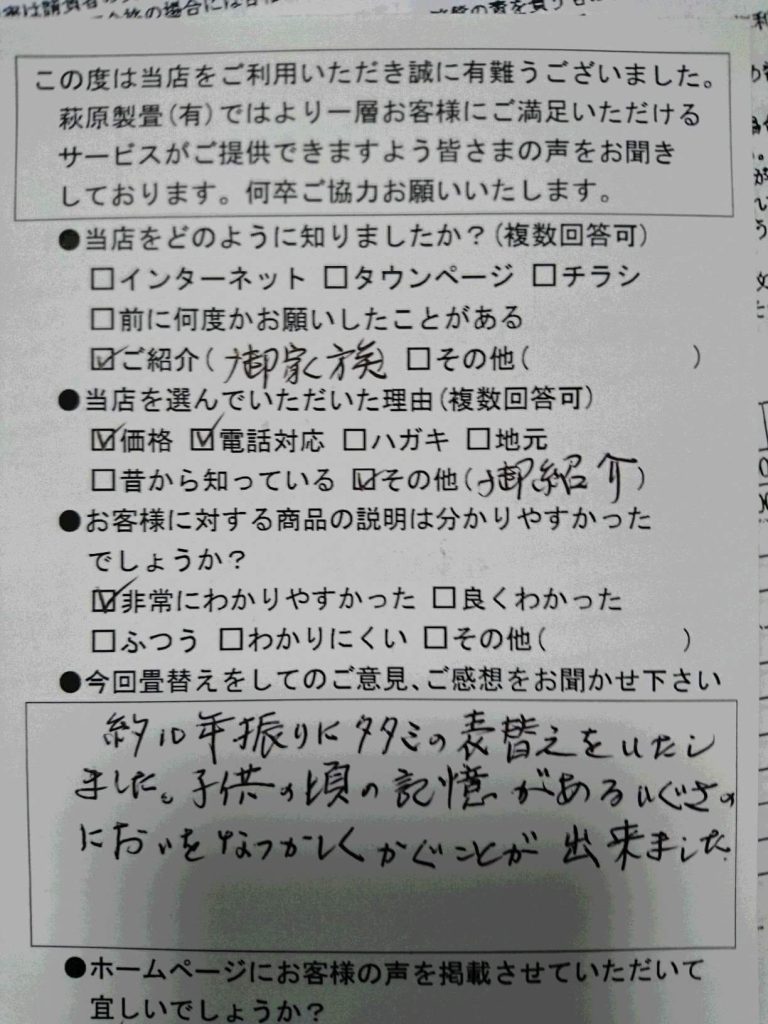 この度は当店をご利用いただき誠に有難うございました。
萩原製畳(有)ではより一層お客様にご満足いただける
サービスがご提供できますよう皆さまの声をお聞き
しております。何卒ご協力お願いいたします。
●当店をどのように知りましたか？(複数回答可)
□インターネット □タウンページ □チラシ
□前に何度かお願いしたことがある
☑ご紹介(御家族 □その他( )
●当店を選んでいただいた理由(複数回答可)
☑価格 ☑電話対応 □ハガキ □地元
□昔から知っている ☑その他(御紹介)
●お客様に対する商品の説明は分かりやすかった
でしょうか？
☑非常にわかりやすかった □良くわかった
□ふつう □わかりにくい □その他( )
●今回畳替えをしてのご意見、ご感想をお聞かせ下さい
約10年振りにタタミの表替えをいたし
ました。子供の頃の記憶があるいぐさの
においをなつかしくかぐことが出来ました
●ホームページにお客様の声を掲載させていただいて
宜しいでしょうか？